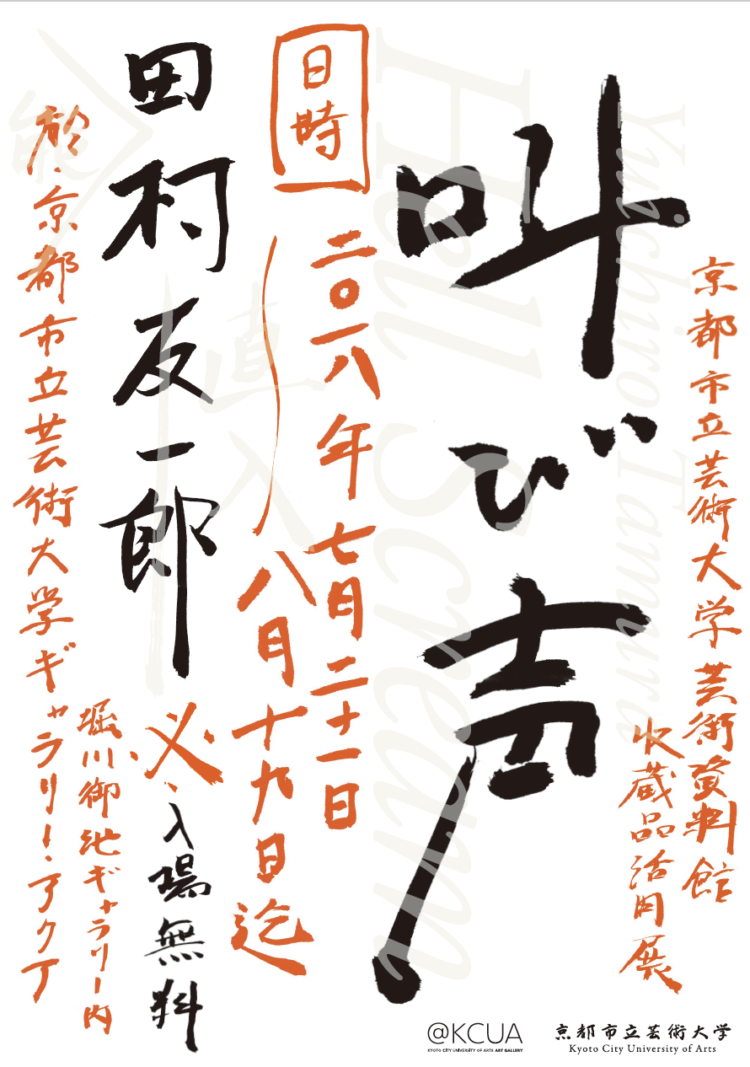 京都市立芸術大学芸術資料館
収蔵品活用展
Yuichiro Tamura
叫び声
Hell Scream
日時
二〇一八年七月二十一日
〜八月十九日迄
田村友一郎
直入
必、入場無料
堀川御池ギャラリー内
於、京都市立芸術大学ギャラリー・アクア
@KCUA
KYOTO CITY UNIVERSITY OF ARTS ART GALLERY
京都市立芸術大学
Kyoto City University of Arts